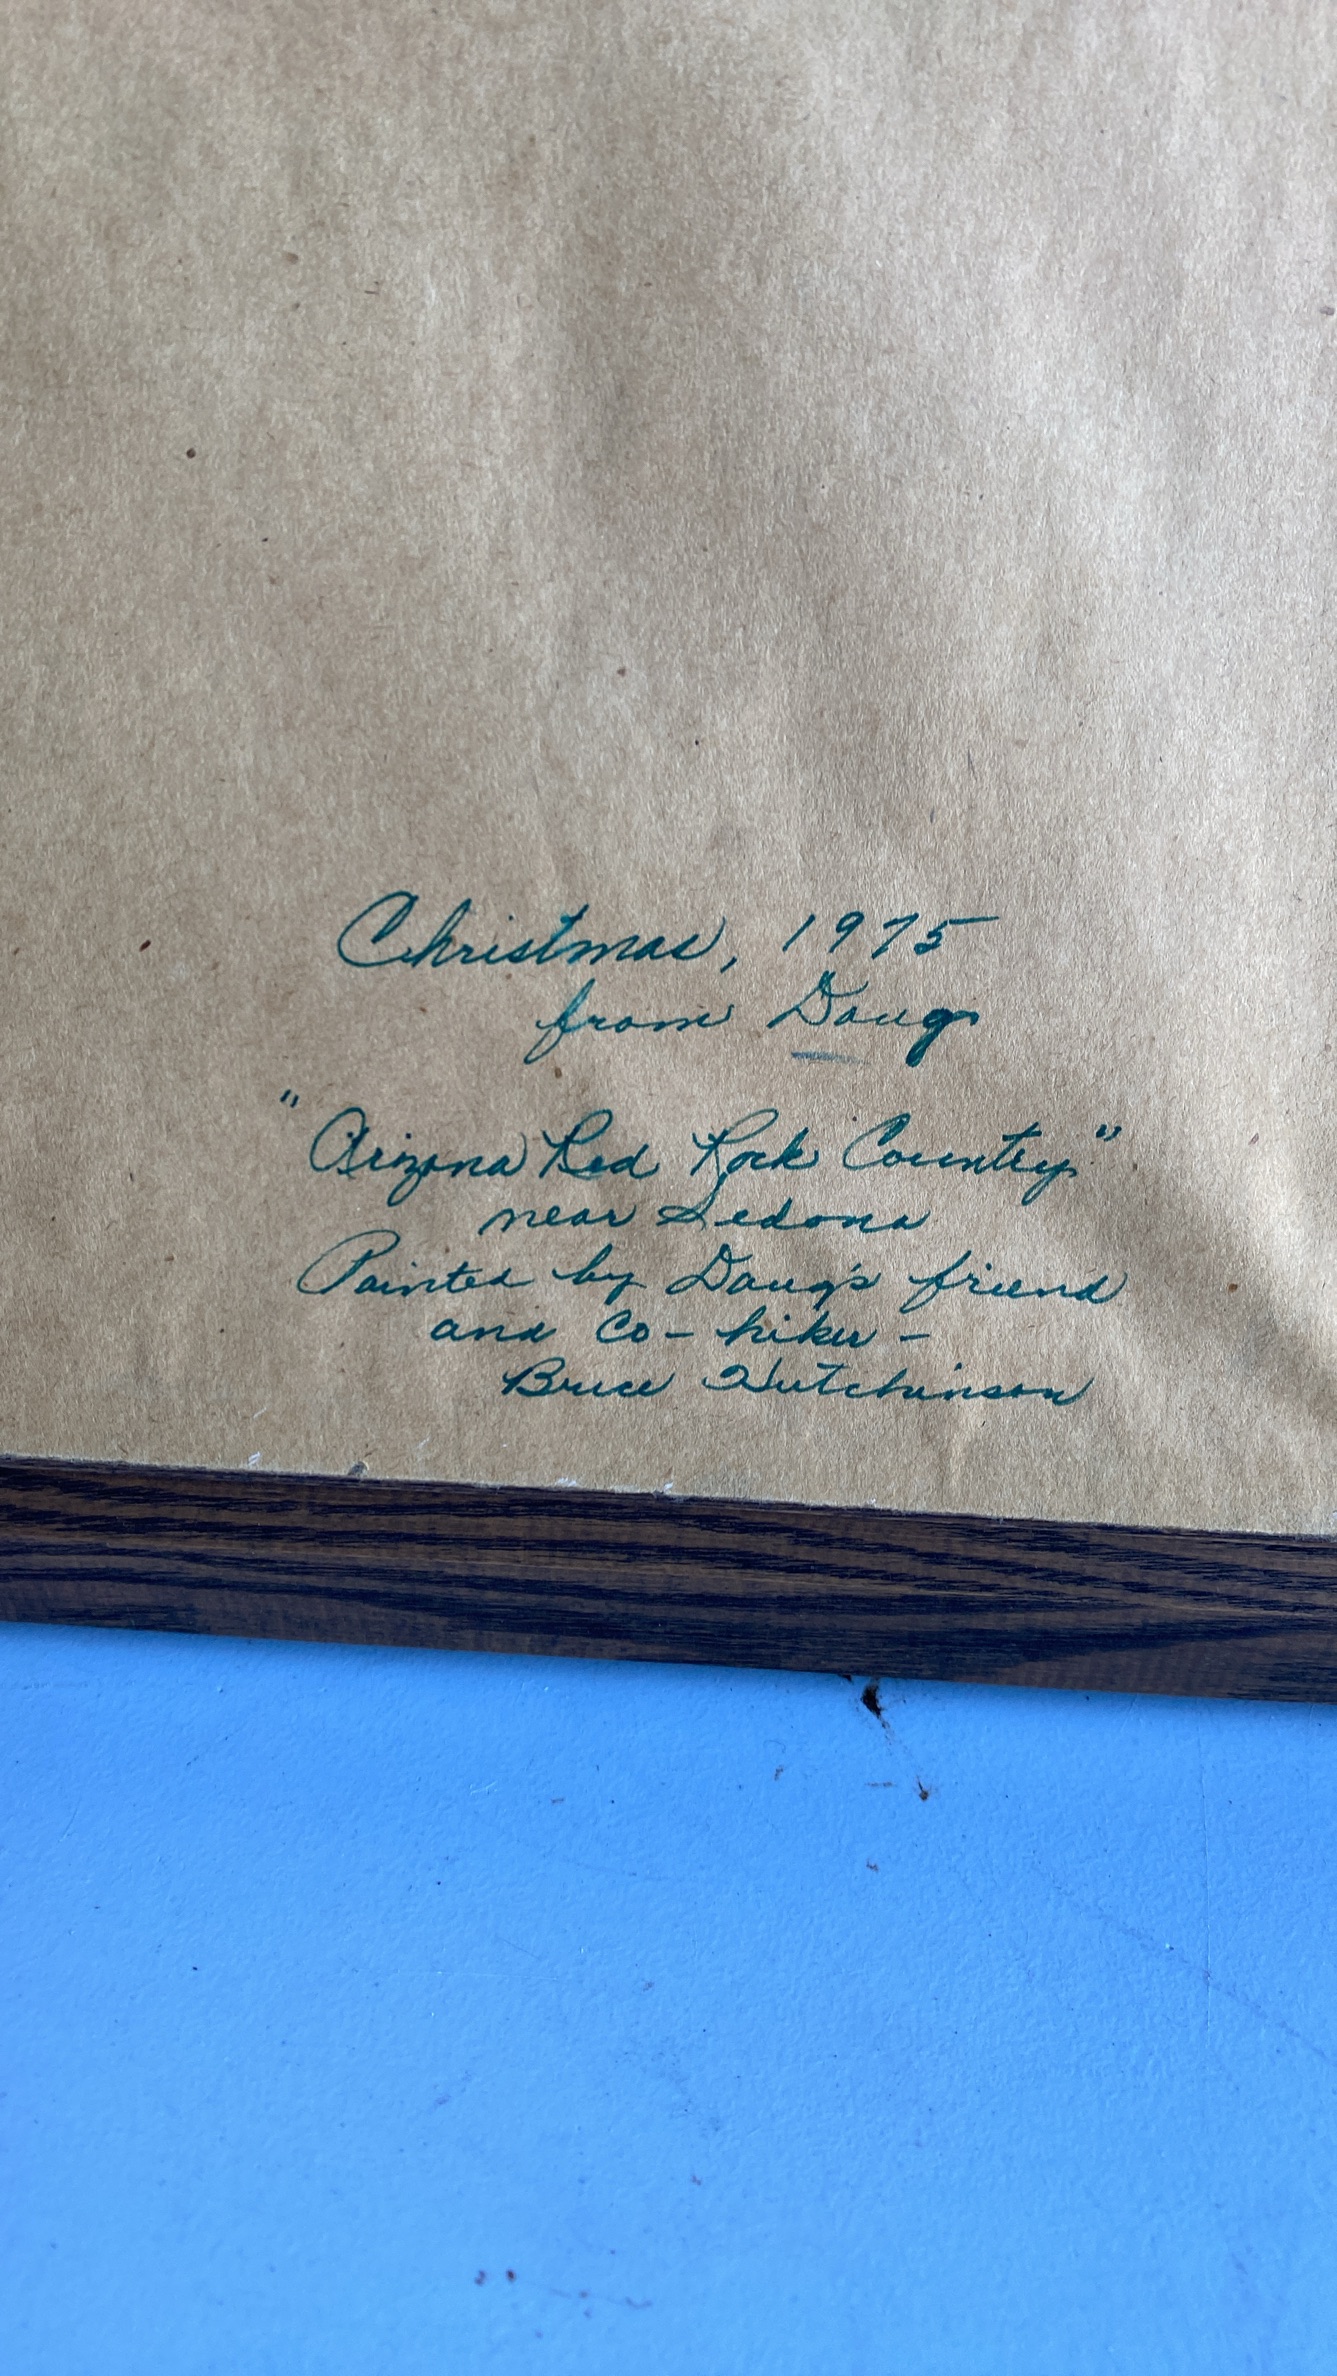 Christmas, 1975
from Doug
"Arizona Red Rock Country"
near Sedona
Painted by Doug's friend
and Co-hiker -
Bruce Hutchinson